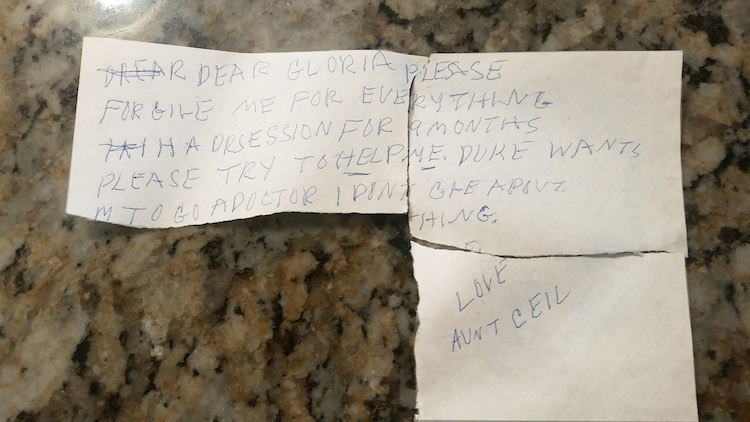 DREAR DEAR GLORIA PLEASE
FORGIVE ME FOR EVERYTHING
I H A DRSESSION FOR 9 MONTHS
PLEASE TRY TO HELP ME. DUKE WANTS
M TO GO A DOCTOR I DONT CARE ABOUT
THING.
LOVE
AUNT CEIL